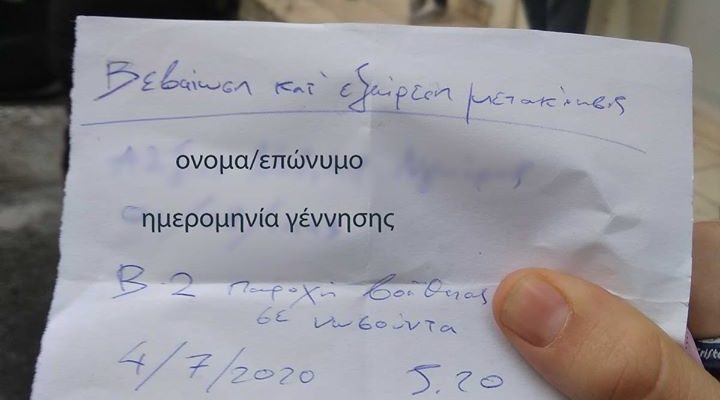 Βεβαίωση κατ' εξαίρεση μετακίνησης
ονομα/επώνυμο
ημερομηνία γέννησης
Β.2 παροχή βοήθειας
σε νωσούντα
4/7/2020 5.20